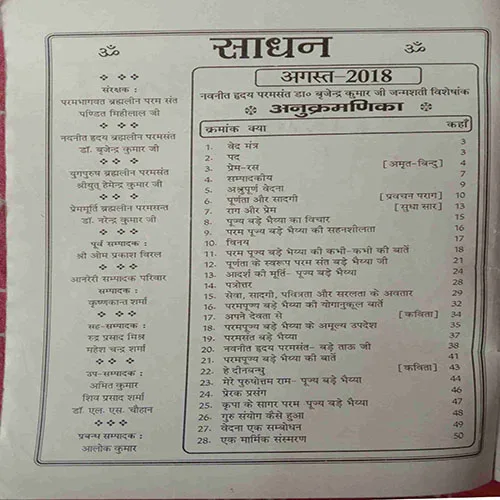 ॐ
साधन
ॐ
❖ ❖ ❖
संरक्षक :
परमभागवत ब्रह्मलीन परम संत
पण्डित मिहीलाल जी
❖ ❖
नवनीत हृदय ब्रह्मलीन परमसंत
डॉ. बृजेन्द्र कुमार जी
❖ ❖
युगपुरुष ब्रह्मलीन परमसंत
श्रीयुत् हेमेन्द्र कुमार जी
❖ ❖
प्रेममूर्ति ब्रह्मलीन परमसन्त
डॉ. नरेन्द्र कुमार जी
❖ ❖
पूर्व सम्पादक :
श्री ओम प्रकाश विरल
❖ ❖
आनरेरी सम्पादक परिवार
सम्पादक :
कृष्णकान्त शर्मा
❖ ❖ ❖
सह-सम्पादक :
रुद्र प्रसाद मिश्र
महेश चन्द्र शर्मा
❖ ❖
उप-सम्पादक :
अमित कुमार
शिव प्रसाद शर्मा
डॉ. एल. एस. चौहान
❖ ❖ ❖
प्रबन्ध सम्पादक :
आलोक कुमार
अगस्त-2018
नवनीत हृदय परमसंत डा० बृजेन्द्र कुमार जी जन्मशती विशेषांक
अनुक्रमणिका
क्रमांक क्या कहाँ
1. वेद मंत्र 3
2. पद 3
3. प्रेम-रस [अमृत-बिन्दु] 4
4. सम्पादकीय 7
5. अश्रुपूर्ण वेदना 9
6. पूर्णता और सादगी [प्रवचन पराग] 10
7. राग और प्रेम [सुधा सार] 13
8. पूज्य बड़े भैय्या का विचार 15
9. परम पूज्य बड़े भैय्या की सहनशीलता 16
10. विनय 17
11. परम पूज्य बड़े भैय्या की कभी-कभी की बातें 18
12. पूर्णता के स्वरूप परम संत बड़े भैय्या जी 21
13. आदर्श की मूर्ति- पूज्य बड़े भैय्या 24
14. पत्रोत्तर 28
15. सेवा, सादगी, पवित्रता और सरलता के अवतार 29
16. परमपूज्य बड़े भैय्या की योगानुकूल बातें 32
17. अपने देवता से [कविता] 34
18. परमपूज्य बड़े भैय्या के अमूल्य उपदेश 35
19. परमसंत बड़े भैय्या 37
20. नवनीत हृदय परमसंत- बड़े ताऊ जी 38
21. परमपूज्य बड़े भैय्या की बातें 41
22. हे दीनबन्धु [कविता] 43
23. मेरे पुरुषोत्तम राम- पूज्य बड़े भैय्या 44
24. प्रेरक प्रसंग 46
25. कृपा के सागर परम पूज्य बड़े भैय्या 47
26. गुरु संयोग कैसे हुआ 48
27. वेदना एक सम्बोधन 49
28. एक मार्मिक संस्मरण 50